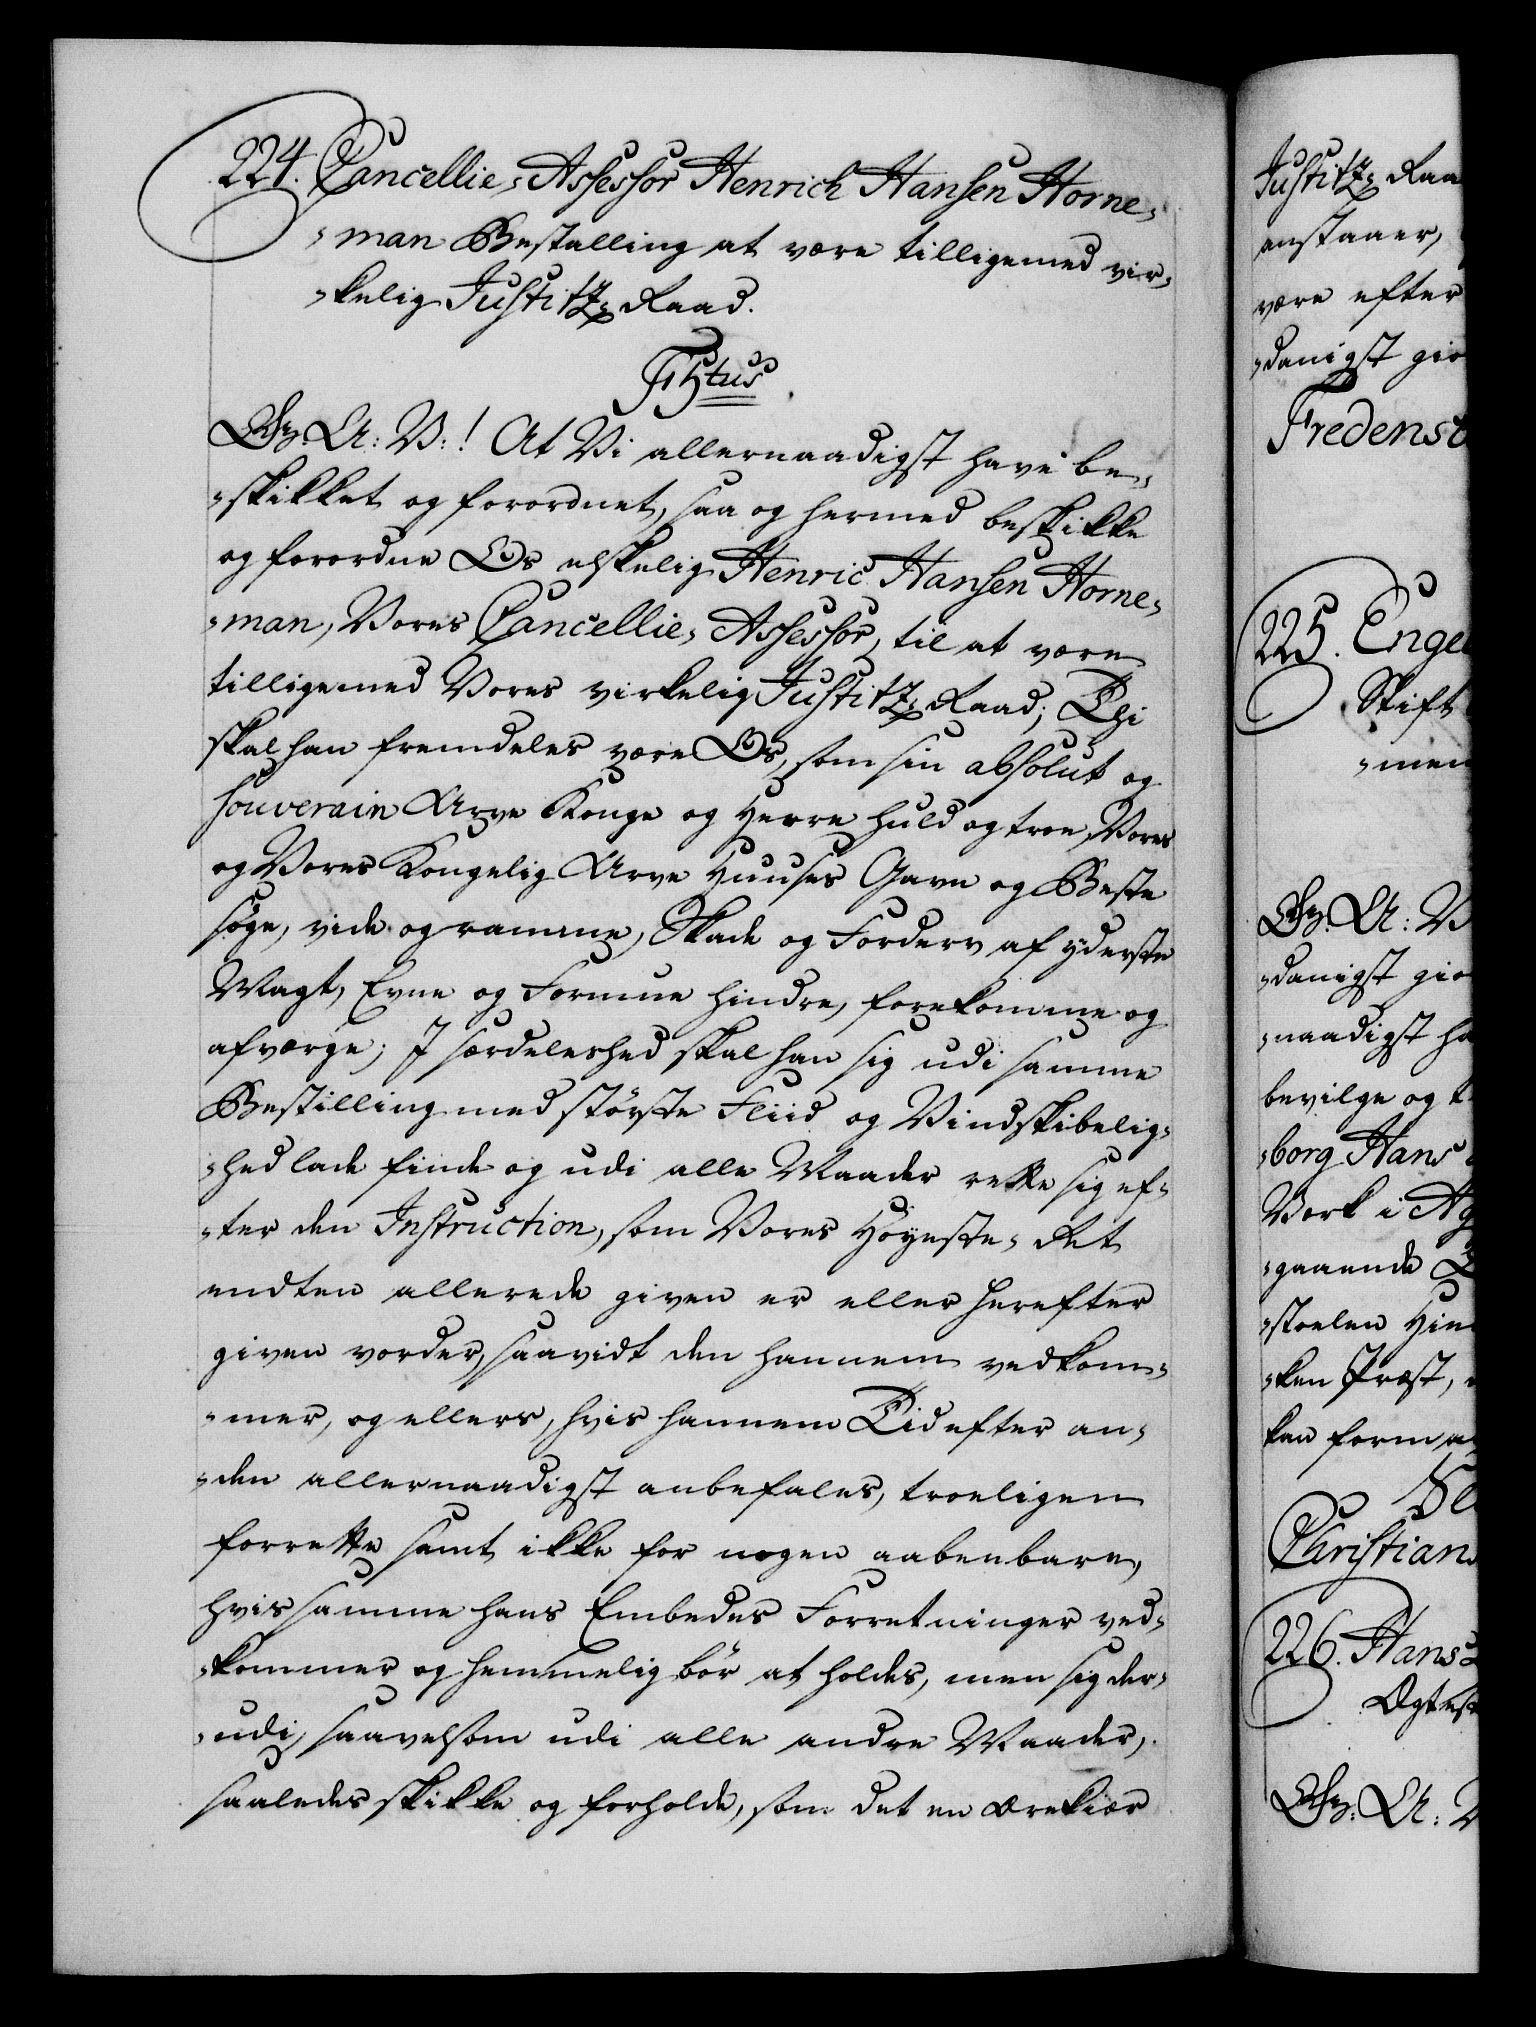 224. Cancellie-Assessor Henrich Hansen Horne-
-man Bestalling at være tilligemed vir-
-kelig Justitz-Raad.
F5tus
Gr. A: V:! At Vi allernaadigst have be-
-skikket og forordnet, saa og hermed beskikke
og forordne Os elskelig Henric Hansen Horne-
-man, Vores Cancellie-Assessor, til at være
tilligemed Vores virkelig Justitz-Raad; Thi
skal han fremdeles være Os, som sin absolut og
souverain Arve Konge og Herre huld og troe, Vores
og Vores Kongelig Arve Huuses Gavn og Beste
søge, vide og ramme, Skade og Forderv af yderste
Magt, Evne og Formue hindre, forekomme og
afværge; J særdeleshed skal han sig udi samme
Bestilling med største Fliid og Vindskibelig-
-hed lade finde og udi alle Maader rette sig ef-
-ter den Instruction, som Vores Høyeste-Ret
endten allerede given er eller herefter
given vorder, saavidt den hannem vedkom-
-mer, og ellers, hvis hannem Tid efter an-
-den allernaadigst anbefales, troeligen
forrette samt ikke for nogen aabenbare,
hvis samme hans Embedes Forretninger ved-
-kommer og hemmelig bør at holdes, men sig der-
-udi, saavelsom udi alle andre Maader,
saaledes skikke og forholde, som det en ærekiær
Justitz-Raa
anstaaer,
være efter
-danigst gio
Fredensb
225. Enge
Skift
-men
Gr. A: V
-danigst gio
-naadigst ha
bevilge og t
-borg Hans
Vork i Ag
-gaaende
-stoelen Hin
-ken Præst,
kan form
Christian
226. Hans
Ægtest
Gr: A: V